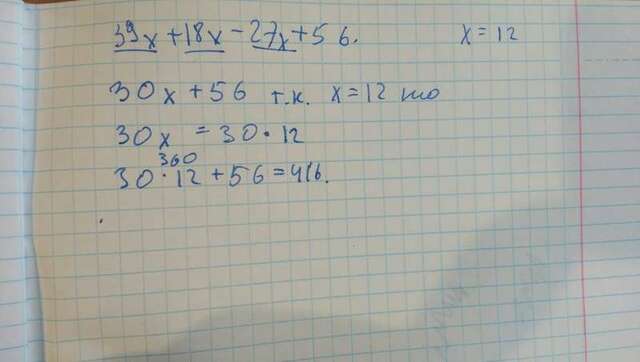 39x + 18x - 27x + 56. x = 12
30x + 56 т.к. x = 12 то
30x = 30 · 12
360
30 · 12 + 56 = 416.